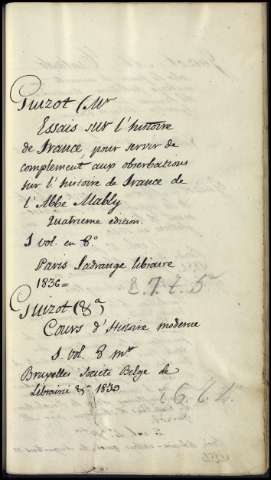 Guizot (Mr
Essais sur l'histoire
de France pour servir de
complement aux obserbations
sur l'histoire de France de
l'Abbé Mably
Quatrieme edicion.
1 vol. en 8º
Paris Ladrange libraire
1836=
Guizot (
Cours d'Histoire moderne
1. vol. 8
Bruxelles Societe Belge de
Librairie 1839